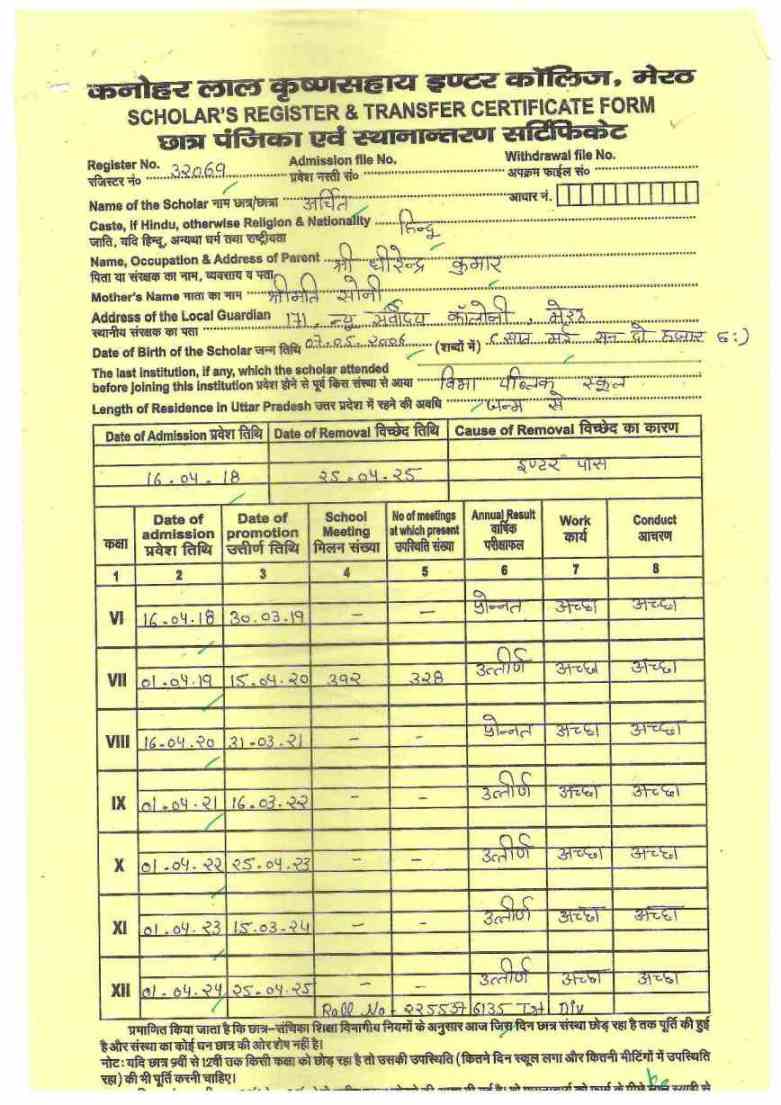 कनोहर लाल कृष्णसहाय इण्टर कॉलिज, मेरठ
SCHOLAR'S REGISTER & TRANSFER CERTIFICATE FORM
छात्र पंजिका एवं स्थानान्तरण सर्टिफिकेट
Register No. 32069 Admission file No. Withdrawal file No.
रजिस्टर नं० प्रवेश नस्ती सं० अपक्रम फाईल सं०
Name of the Scholar नाम छात्र/छात्रा अर्चित आधार नं.
Caste, if Hindu, otherwise Religion & Nationality हिन्दू
जाति, यदि हिन्दू, अन्यथा धर्म तथा राष्ट्रीयता
Name, Occupation & Address of Parent श्री धीरेन्द्र कुमार
पिता या संरक्षक का नाम, व्यवसाय व पता
Mother's Name माता का नाम श्रीमति सोनी
Address of the Local Guardian 171, न्यू सर्वोदय कॉलोनी, मेरठ
स्थानीय संरक्षक का पता
Date of Birth of the Scholar जन्म तिथि 07.05.2006 (शब्दों में) (सात मई सन दो हजार 6:)
The last institution, if any, which the scholar attended
before joining this institution प्रवेश होने से पूर्व किस संस्था से आया विभा पब्लिक स्कूल
Length of Residence in Uttar Pradesh उत्तर प्रदेश में रहने की अवधि जन्म से
Date of Admission प्रवेश तिथि Date of Removal विच्छेद तिथि Cause of Removal विच्छेद का कारण
16.04.18 २५.०४.२५ इण्टर पास
कक्षा Date of admission प्रवेश तिथि Date of promotion उत्तीर्ण तिथि School Meeting मिलन संख्या No of meetings at which present उपस्थिति संख्या Annual Result वार्षिक परीक्षाफल Work कार्य Conduct आचरण
1 2 3 4 5 6 7 8
VI 16.04.18 30.03.19 - - प्रोन्नत अच्छा अच्छा
VII 01.04.19 15.04.२0 392 328 उत्तीर्ण अच्छा अच्छा
VIII 16-04.२0 31-03.२1 - - प्रोन्नत अच्छा अच्छा
IX 01.04.२1 16.03.२२ - - उत्तीर्ण अच्छा अच्छा
X 01.04.२२ २5.04.२3 - - उत्तीर्ण अच्छा अच्छा
XI 01.04.२3 15.03.२4 - - उत्तीर्ण अच्छा अच्छा
XII 01.04.२4 २5.04.२5 - - उत्तीर्ण अच्छा अच्छा
Roll No - Ist Div
प्रमाणित किया जाता है कि छात्र-संचिका शिक्षा विभागीय नियमों के अनुसार आज जिस दिन छात्र संस्था छोड़ रहा है तक पूर्ति की हुई
है और संस्था का कोई धन छात्र की ओर शेष नहीं है।
नोट: यदि छात्र 9वीं से 12वीं तक किसी कक्षा को छोड़ रहा है तो उसकी उपस्थिति (कितने दिन स्कूल लगा और कितनी मीटिंगों में उपस्थिति
रहा) की भी पूर्ति करनी चाहिए।